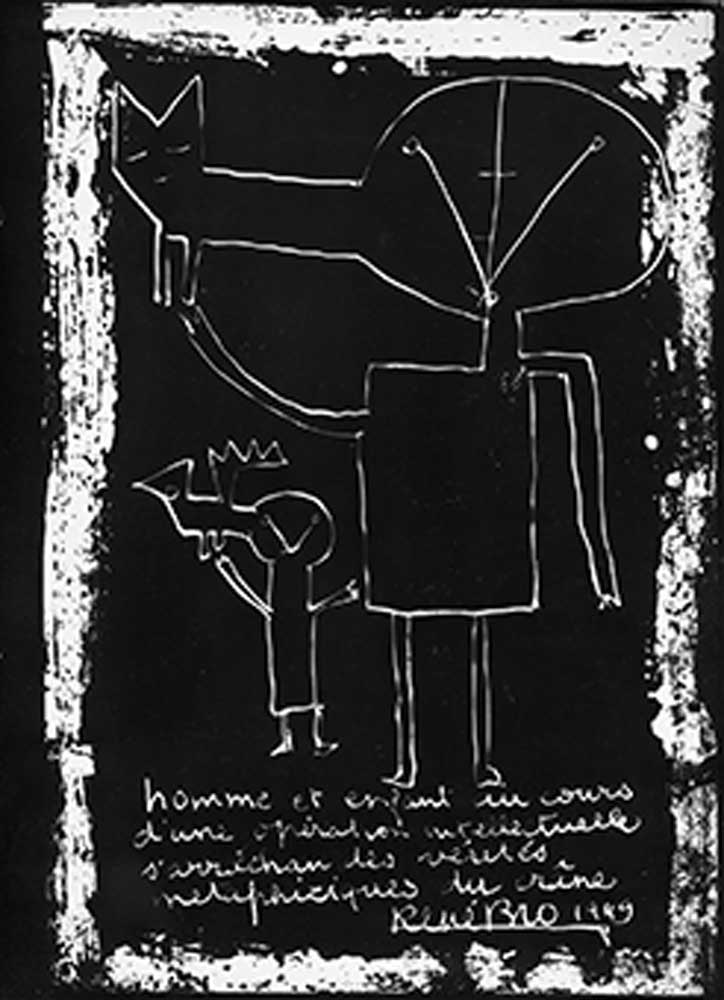 homme et enfant au cours
d'une opération intellectuelle
s'arréchan des vérités
metaphiciques du crâne
René BRO 1949